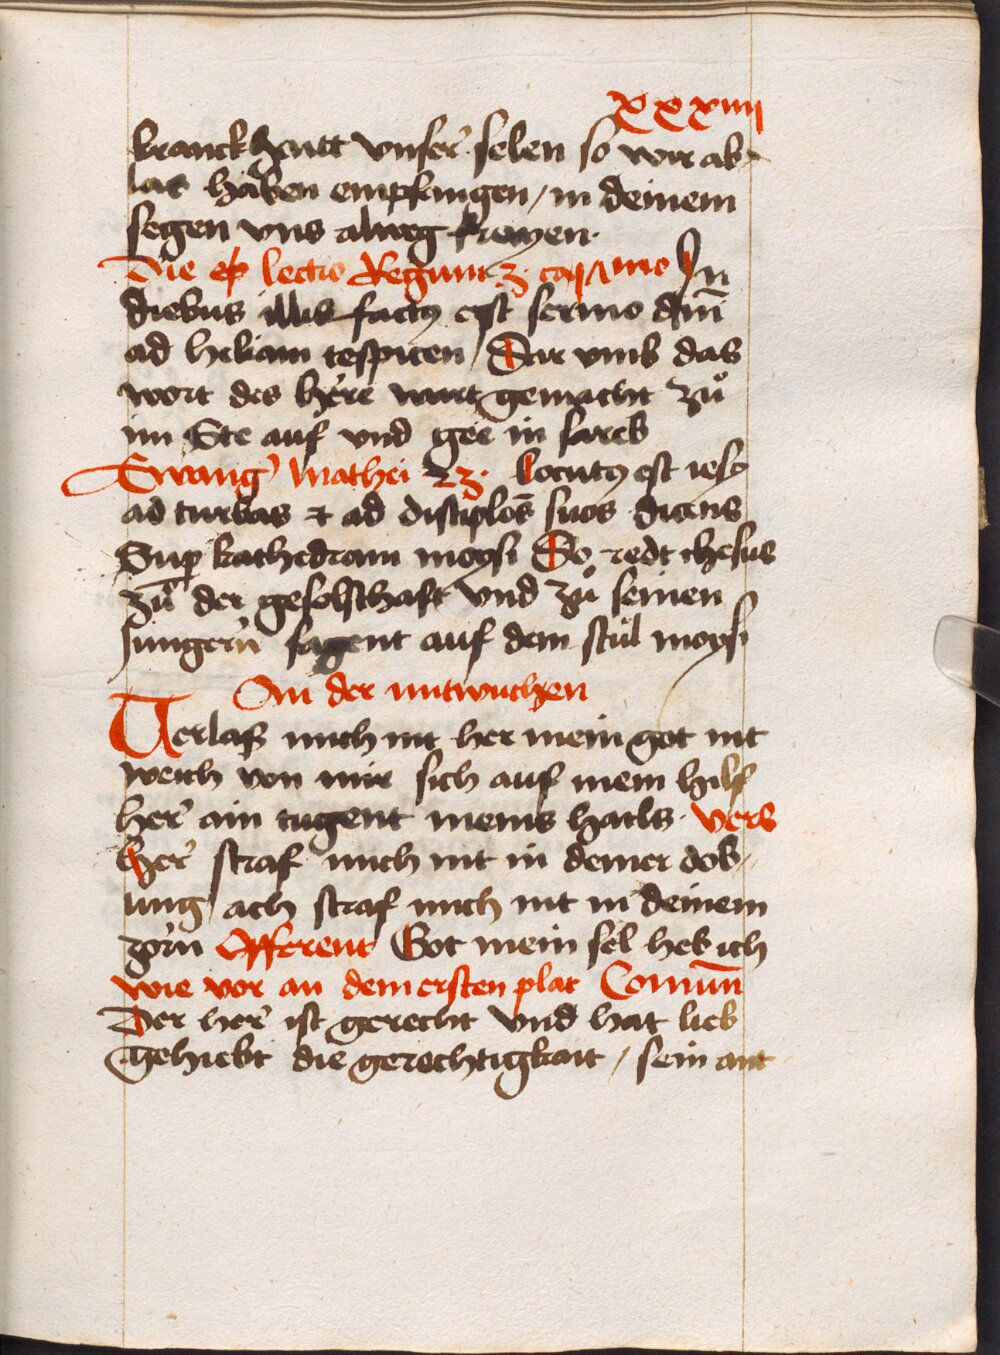 xxxiiij
kranckhaitt vnser selen so wir ab-
las haben empfangen / in deinem
segen vns alweg freyen.
Die ep lectio Regum 3. In
diebus illis factꝰ est sermo dm̄
ad heliam tespiten / Dar vmb das
wort des here wart gemacht zů
im Ste auf vnd gee in sareb
Ewang mathei 23. locutꝰ est iesꝰ
ad turbas ⁊ ad discip̱los̄ suos dicens
Sup kathedram moysi Do redt ihesus
zů der geselschaft vnd zů seinen
jungern sagent auf dem stůl moysi
An der mitwuchen
Verlass mich nit her mein got nit
weich von mir sich auf mein hilf
her ain tugent meins hails. vers
Her straf mich nit in deiner dob-
ung / ach straf mich nit in deinem
zorn Offerent Got mein sel heb ich
wie vor an dem ersten plat Comūn
Der her ist gerecht vnd hat lieb
gehiebt die gerechtigkait / sein ant